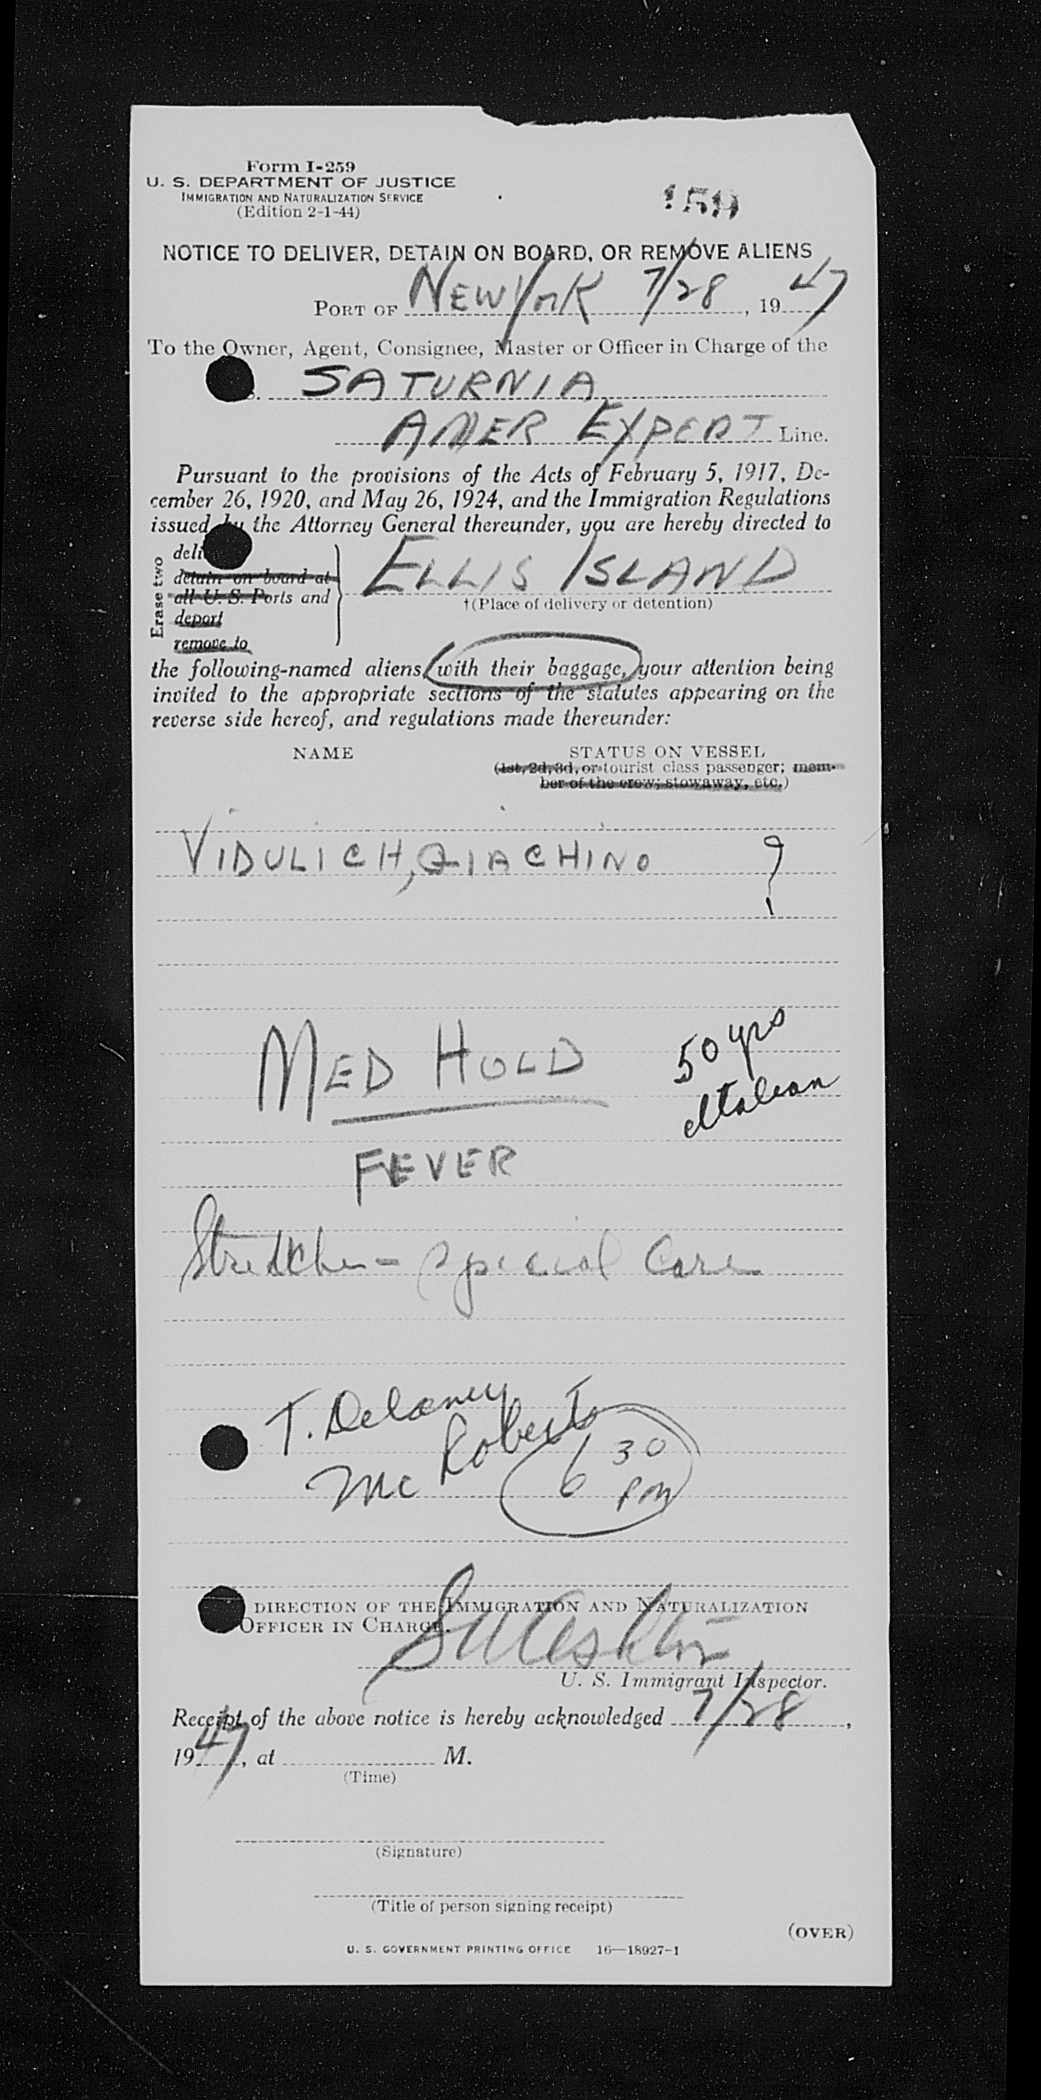 Form I-259
U. S. DEPARTMENT OF JUSTICE
IMMIGRATION AND NATURALIZATION SERVICE
(Edition 2-1-44)
159
NOTICE TO DELIVER, DETAIN ON BOARD, OR REMOVE ALIENS
PORT OF NEW YORK 7/28, 1947
To the Owner, Agent, Consignee, Master or Officer in Charge of the
SATURNIA
AMER EXPORT Line.
Pursuant to the provisions of the Acts of February 5, 1917, De-
cember 26, 1920, and May 26, 1924, and the Immigration Regulations
issued by the Attorney General thereunder, you are hereby directed to
Erase two
deli
detain on board at
all U. S. Ports and
deport
remove to
ELLIS ISLAND
†(Place of delivery or detention)
the following-named aliens, with their baggage, your attention being
invited to the appropriate sections of the statutes appearing on the
reverse side hereof, and regulations made thereunder:
NAME STATUS ON VESSEL
(1st, 2d, 3d, or tourist class passenger; mem-
ber of the crew; stowaway, etc.)
VIDULICH, GIACHINO ?
MED HOLD 50 yrs
Italian
FEVER
Stretcher - special care
T. Delaney
Mc Roberts
6 30 PM
DIRECTION OF THE IMMIGRATION AND NATURALIZATION
OFFICER IN CHARGE.
U. S. Immigrant Inspector.
Receipt of the above notice is hereby acknowledged 7/28,
1947, at M.
(Time)
(Signature)
(Title of person signing receipt)
(OVER)
U. S. GOVERNMENT PRINTING OFFICE 16—18927-1